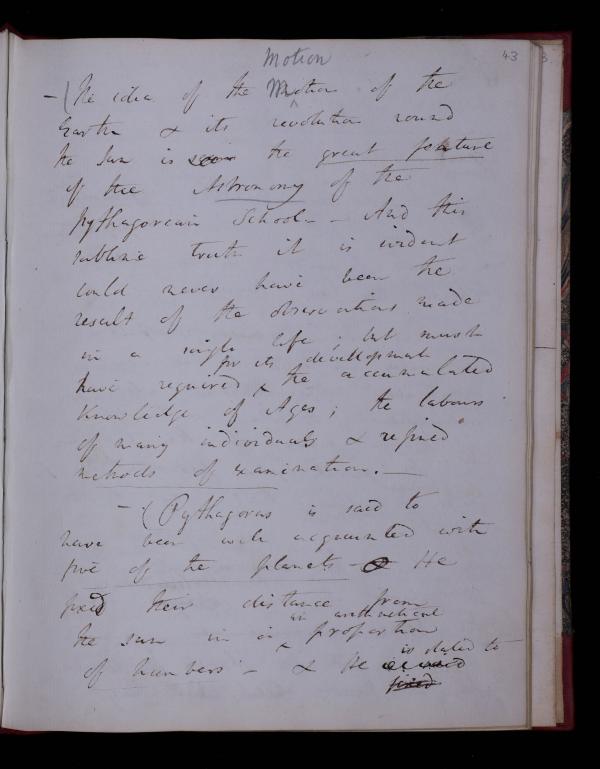 Motion
43
- (The idea of the Motion of the
Earth & its revolution round
the Sun is the great feature
of the Astronomy of the
Pythagorean School - - And this
sublime truth it is evident
could never have been the
result of the observations made
in a single life; but must
for its devellopment
have required the accumulated
Knowledge of Ages; the labours
of many individuals & refined
methods of examination. -
- (Pythagoras is said to
have been well acquainted with
five of the planets - & He
fixed their distance from
an arithmetical
the sun in a proportion
of numbers - & He
is stated to
fixed